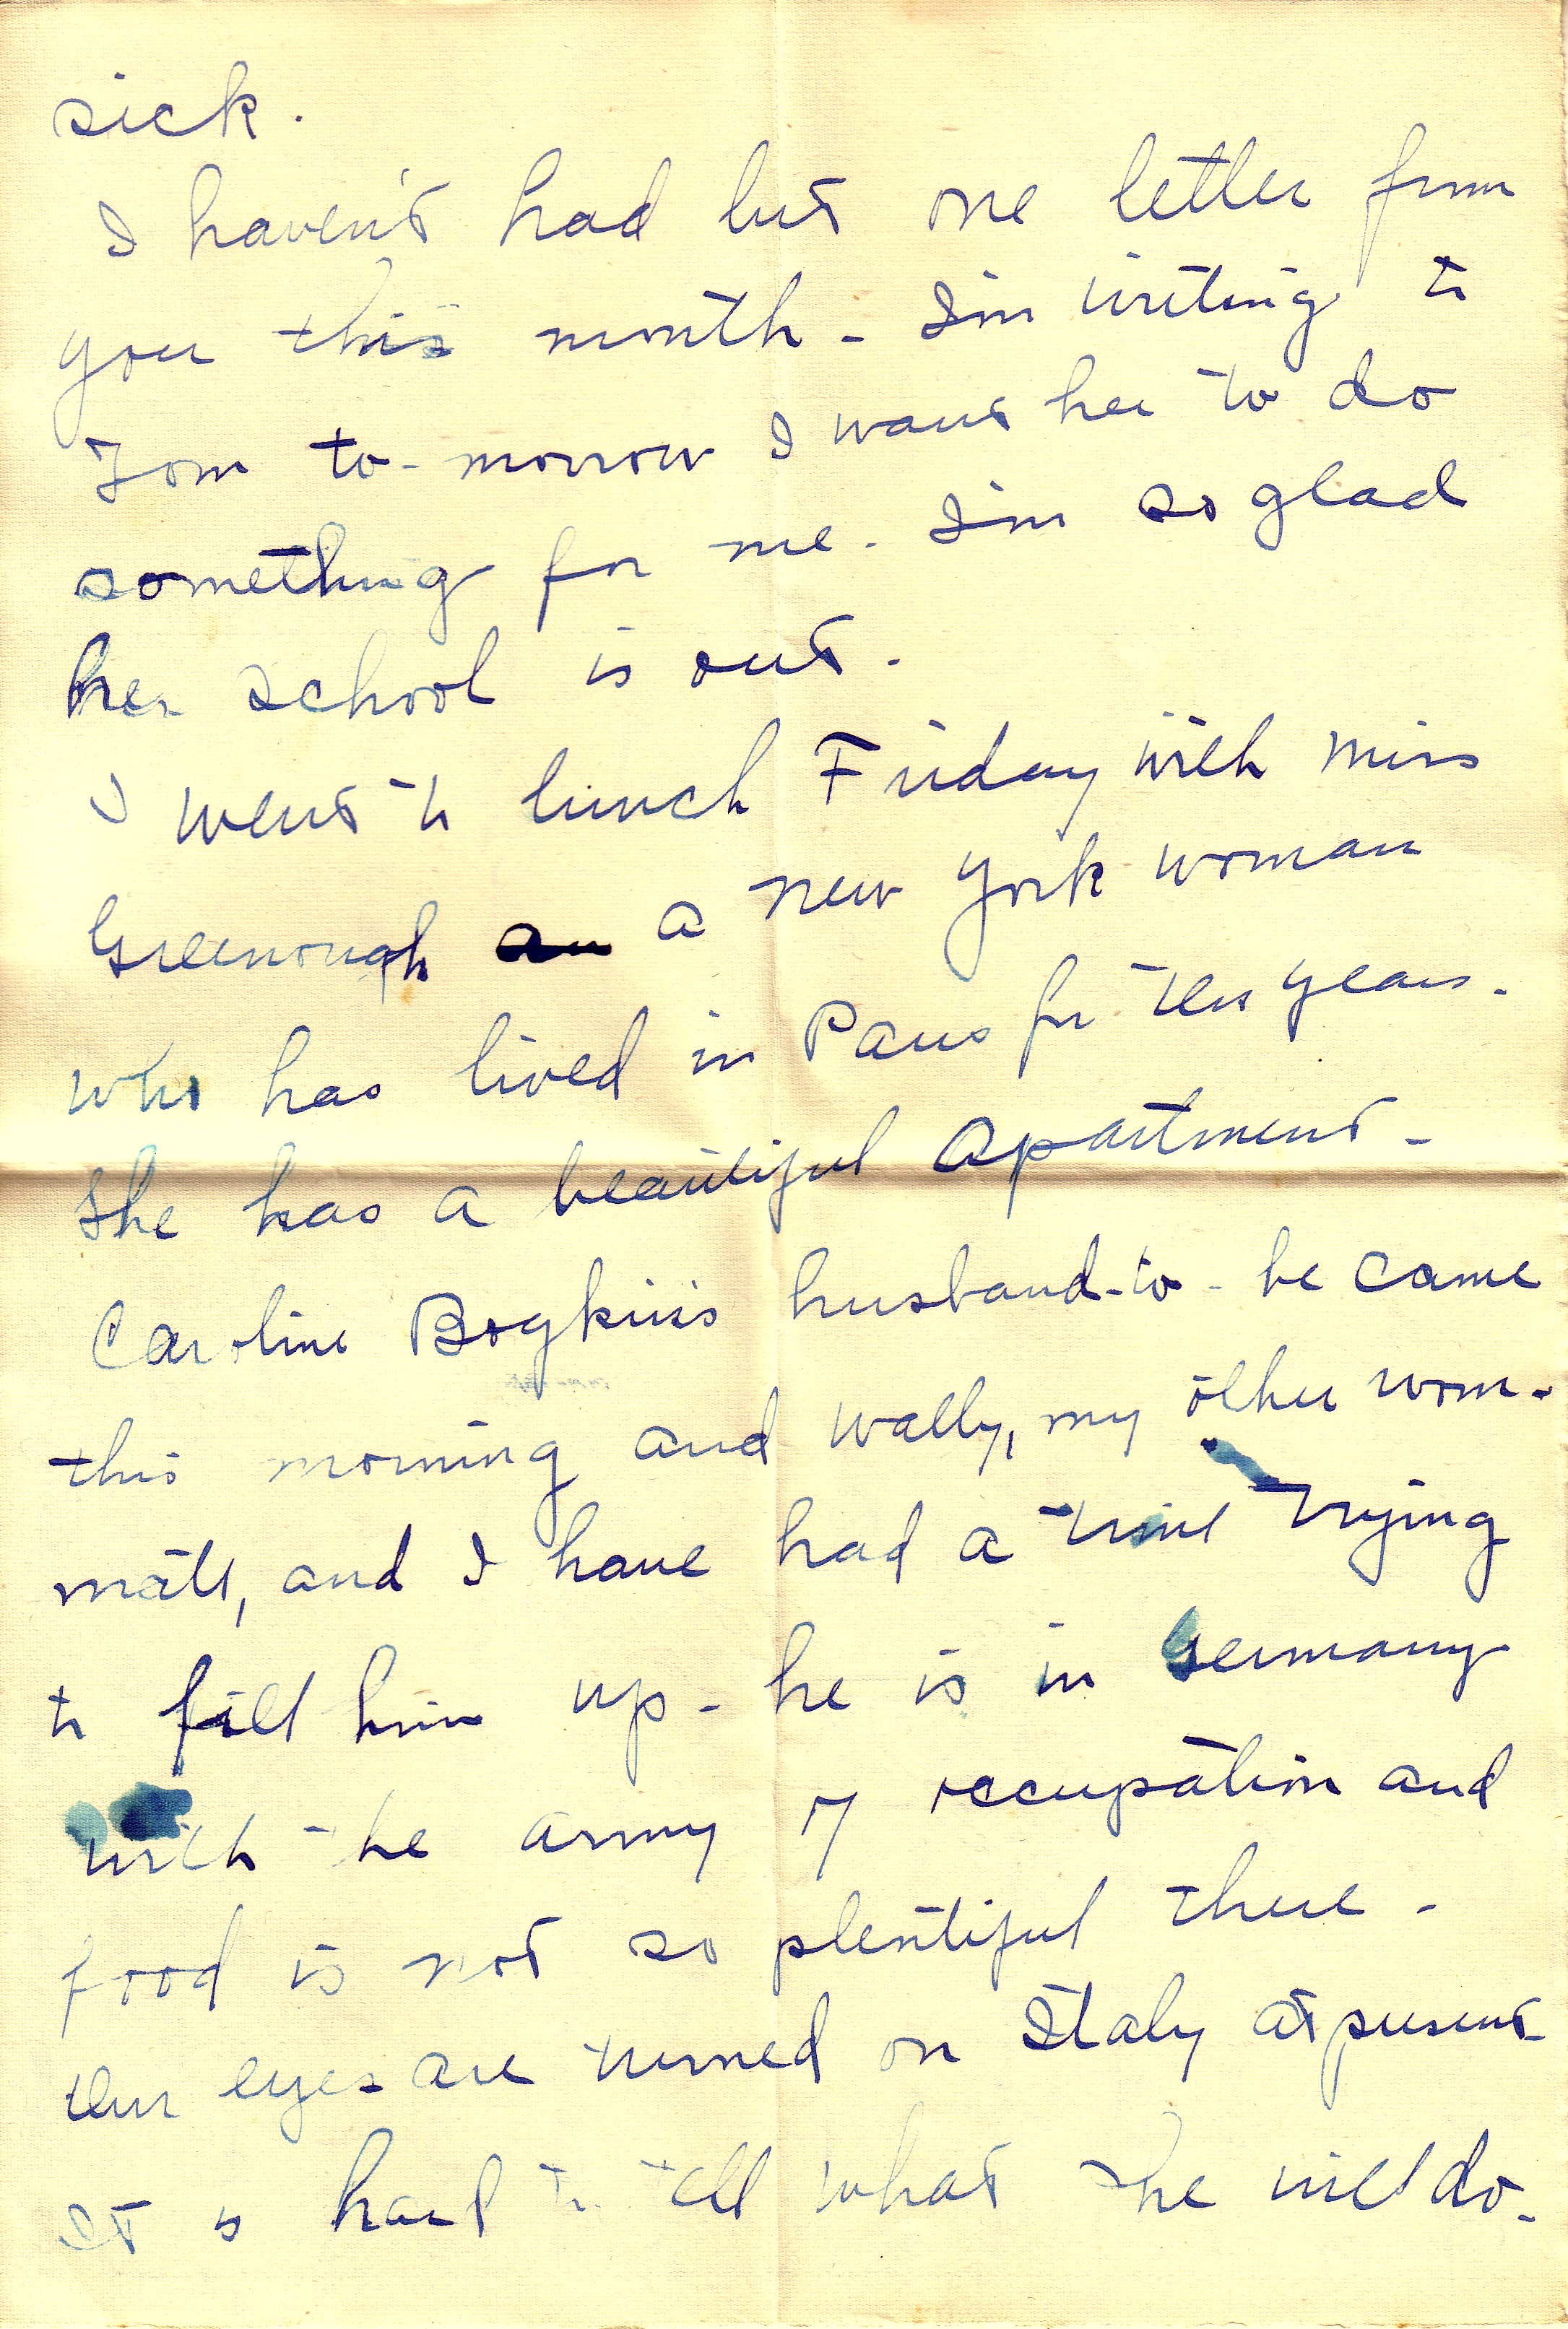 sick.
I haven't had but one letter from
you this month - I'm writing to
Tom to-morrow I want her to do
something for me. I'm so glad
her school is out.
I went to lunch Friday with Miss
Greenough a New York woman
who has lived in Paris for ten years.
She has a beautiful apartment -
Caroline Boykin's husband-to-be came
this morning and Wally, my other room-
mate, and I have had a time trying
to fill him up - he is in Germany
with the army of occupation and
food is not so plentiful there -
Our eyes are turned on Italy at present
It is hard to tell what she will do.